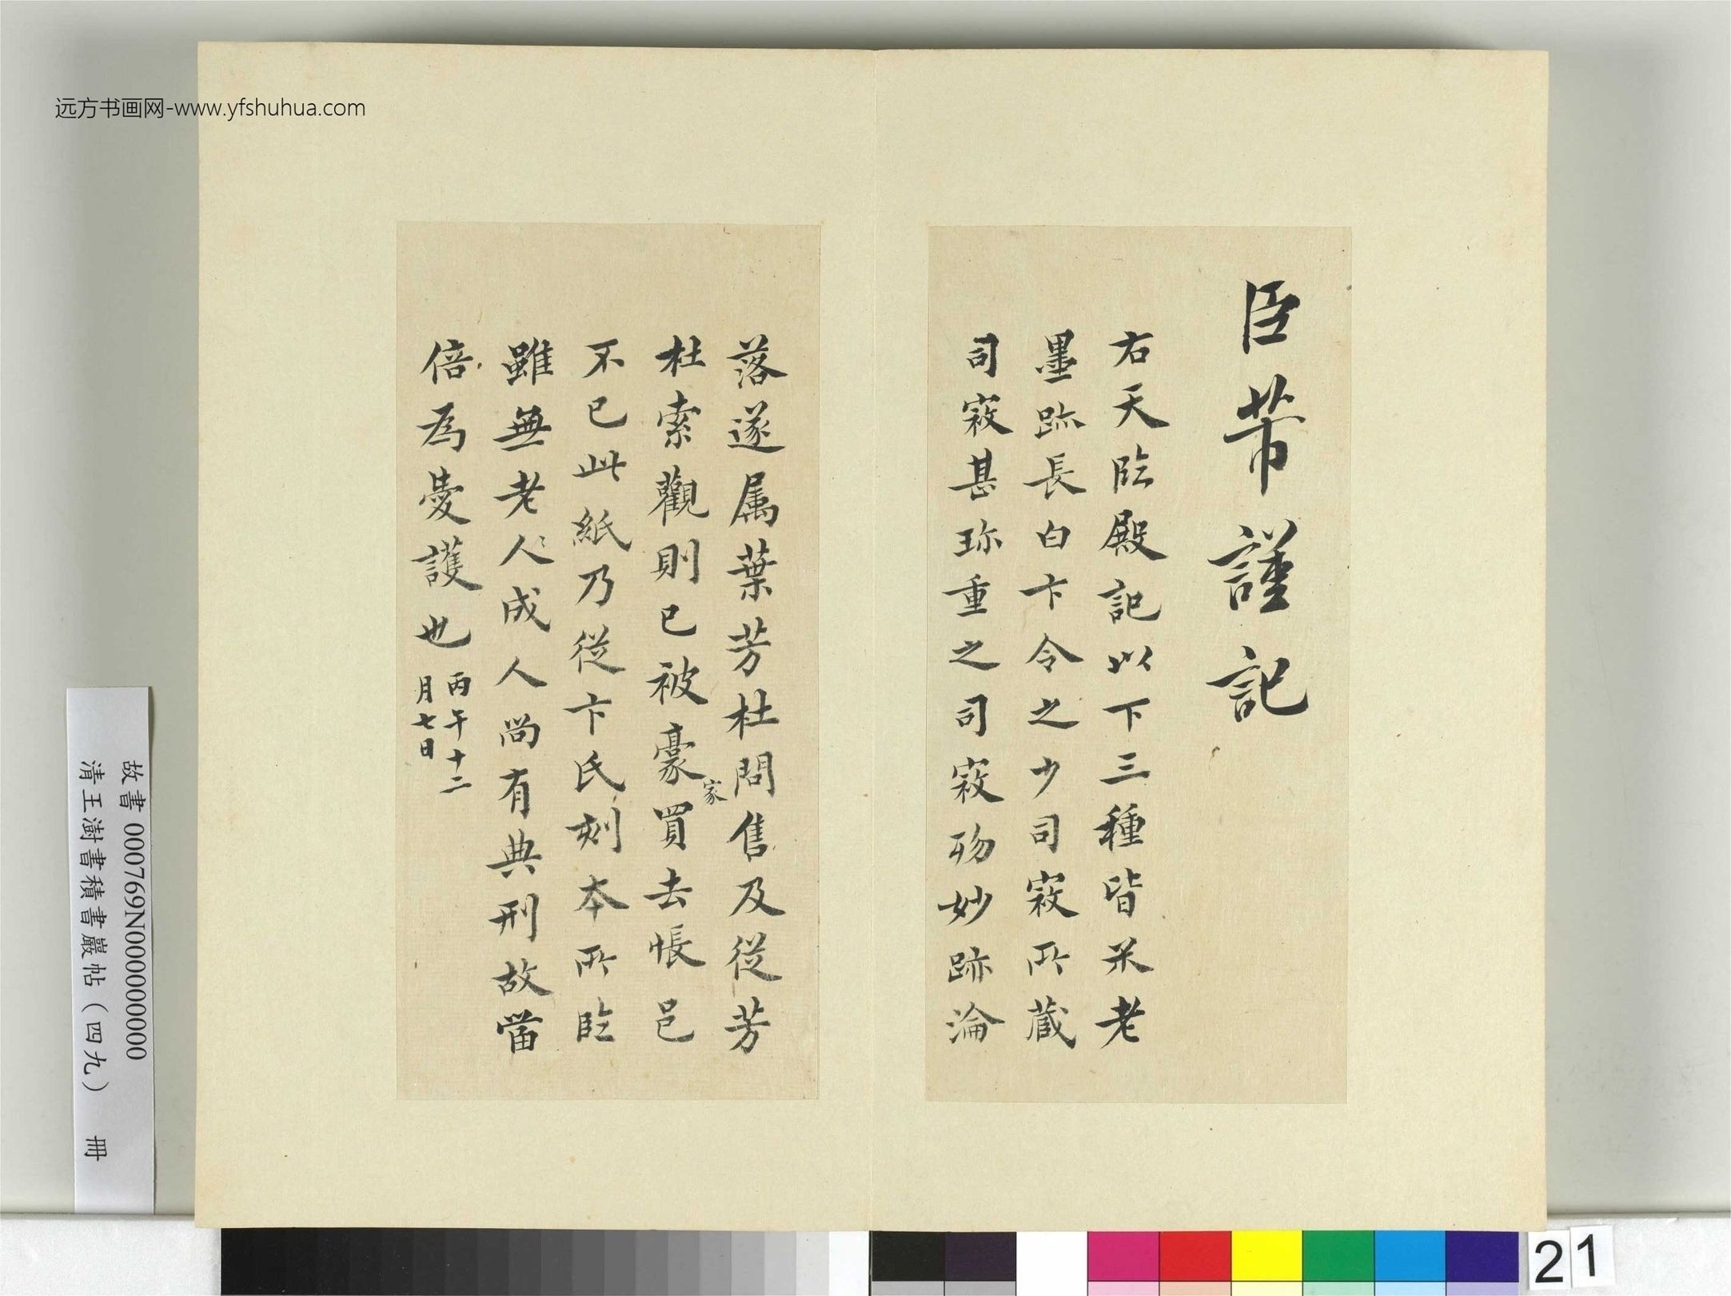 远方书画网-www.yfshuhua.com
臣芾謹記
右天臨殿記以下三種皆米老
墨跡長白卞令之少司寇所藏
司寇甚珎重之司寇歾妙跡淪
落遂属葉芳杜問售及從芳
杜索觀則已被豪家買去悵邑
不已此紙乃從卞氏刻本所臨
雖無老人〻成人尚有典刑故當
倍為愛護也
丙午十二
月七日
故書 000769N000000000
清王澍書積書巖帖（四九） 冊
21